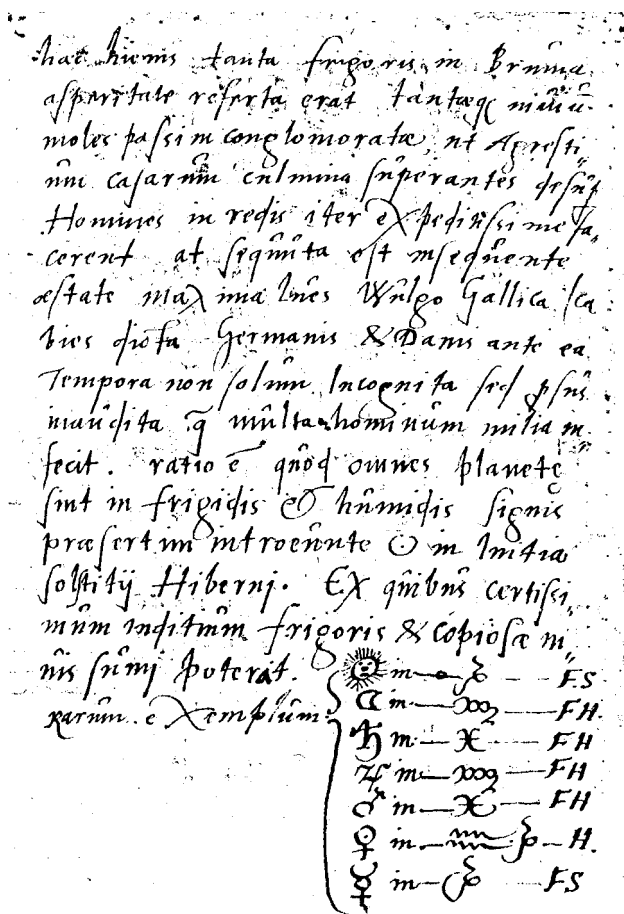 hæc hiemis tanta frigoris in Bruma
asperitate referta erat tantæq; niuiũ
moles passim conglomoratæ, ut Agresti=
um casarum culmina superantes desup
Homines in redis iter expeditissime fa=
cerent at sequuta est insequente
æstate maxima lues Wulgo Gallica sca
bies dicta Germanis & Danis ante ea
Tempora non solum Incognita sed prsus
inaudita q̃ multa hominum milia in=
fecit. ratio ẽ quod omnes planetę
sint in frigidis & humidis signis
præsertim introeunte ☉ in Initia
solstitij Hiberni. Ex quibus certissi=
mum inditium frigoris & copiosæ ni=
uis sumi poterat.
Rarum exemplum.
☉ in — ♑ — F.S
☾ in — ♏ — F.H.
♄ in — ♓ — F H
♃ in — ♏ — F H
♂ in — ♓ — F H
♀ in — ♒ ♑ — H.
☿ in — ♑ — F S